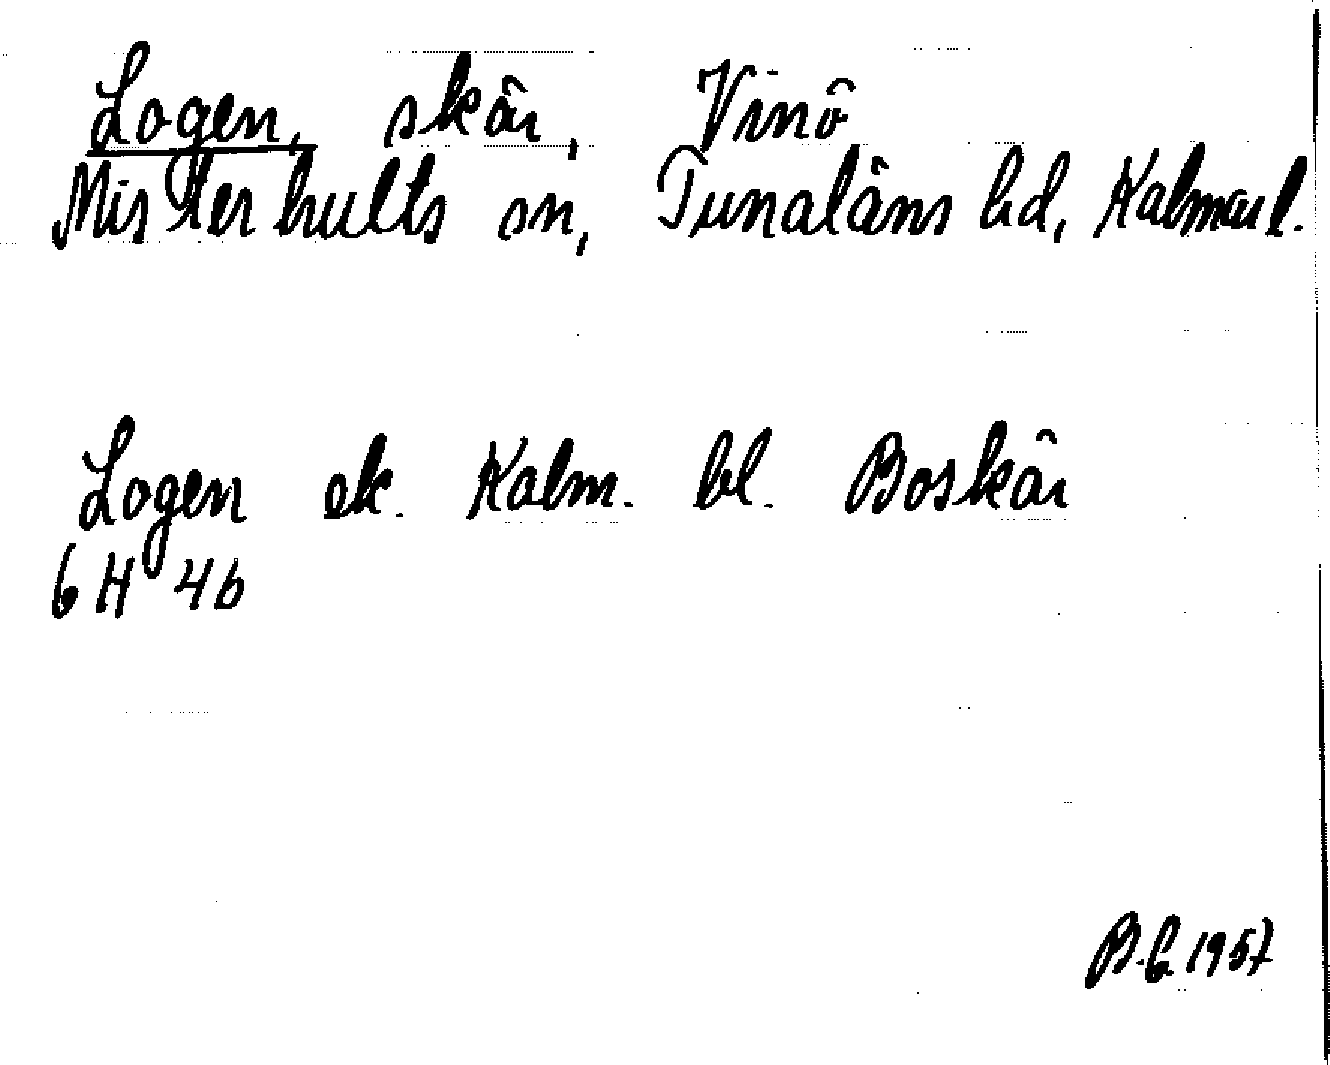 Logen, skär, Vinö
Misterhults sn, Tunaläns hd, Kalmar l.
Logen ek. Kalm. bl. Boskär
6 H 4b
1957